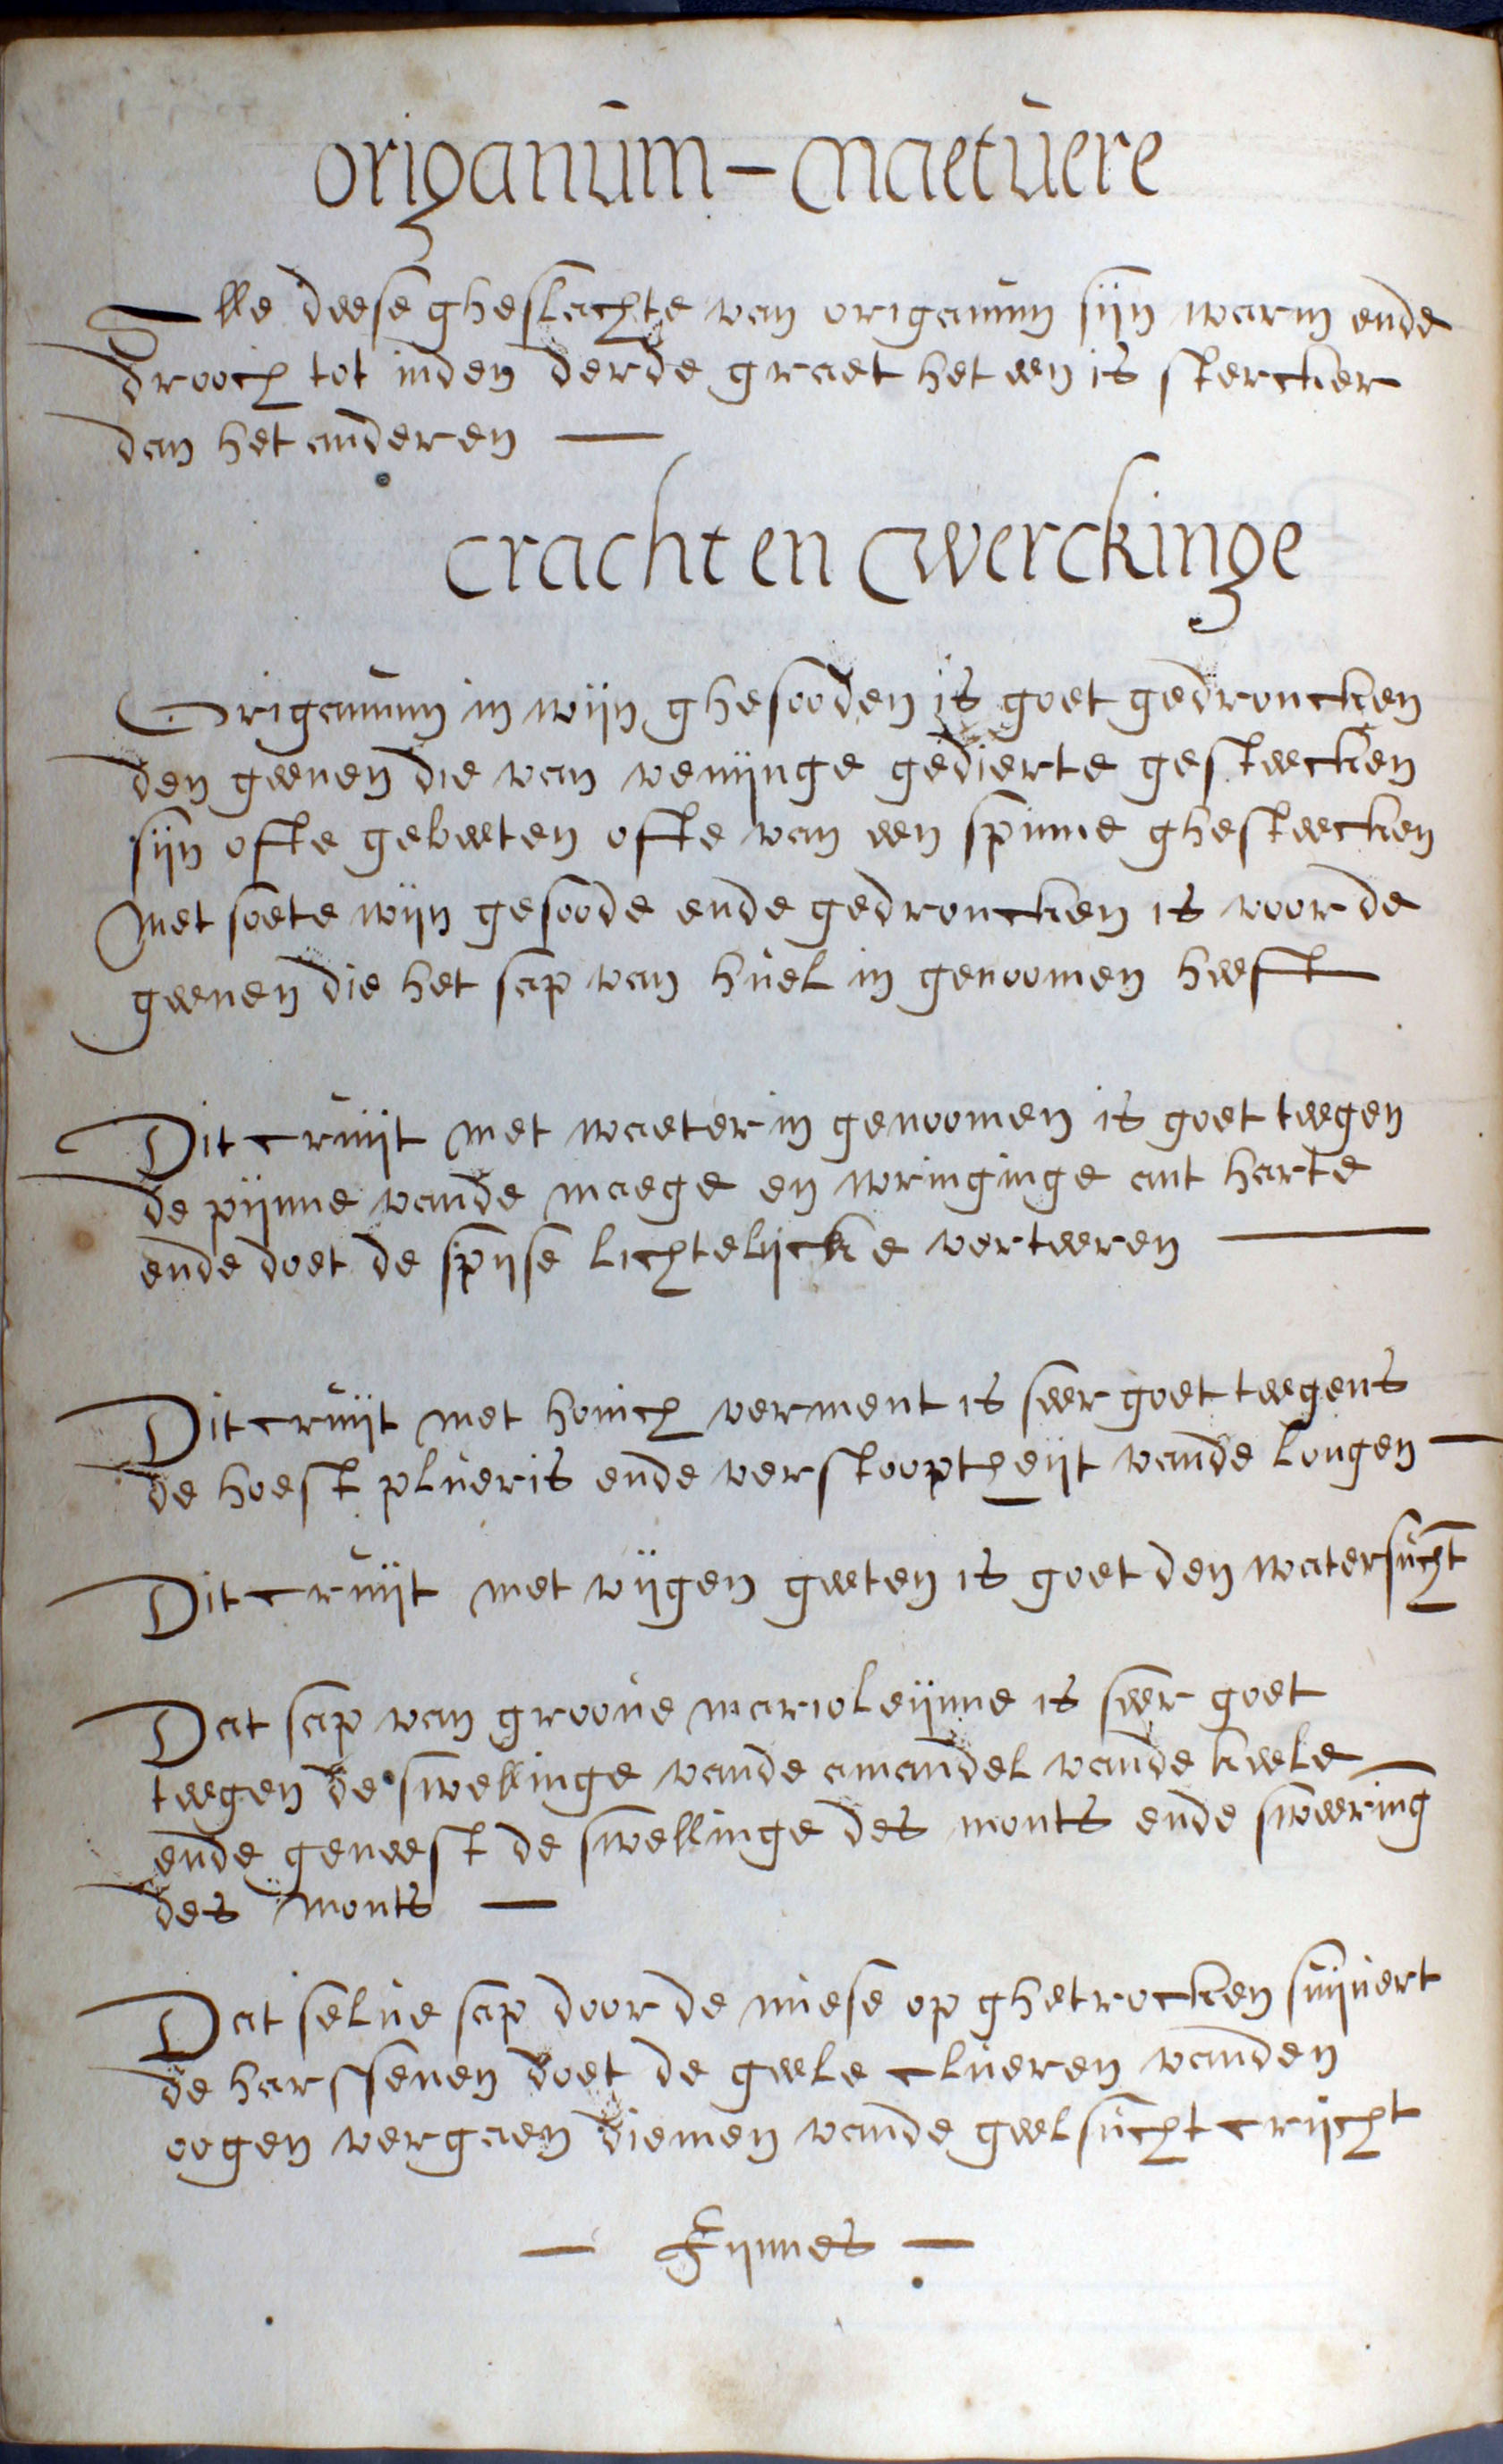 origanum - maetuere
Alle deese gheslachte van origanum sijn warm ende
drooch tot inden derde graet het een is stercker
dan het anderen —
cracht en werckinge
Origanum in wijn ghesooden is goet gedroncken
den geenen die van venijnge gedierte gesteecken
sijn ofte gebeeten ofte van een spinne ghesteecken
Met soete wijn gesoode ende gedroncken is voor de
geenen die het sap van huel in genoomen heeft
Dit cruijt met waeter in genoomen is goet teegen
de pijnne vande maege en wringinge ant harte
ende doet de spijse lichtelijcke verteeren —
Dit cruijt met honich verment is seer goet teegens
de hoest plueris ende verstooptheijt vande longen —
Dit cruijt met vijgen geeten is goet den watersucht
Dat sap van groone marioleijnne is seer goet
teegen de swellinge vande amandel vande keele
ende geneest de swellinge des monts ende sweering
des monts —
Dat selue sap door de nuese op ghetrocken suijuert
de harssenen doet de geele clueren vanden
oogen vergaen diemen vande geelsucht crijcht
— Fijnnes —